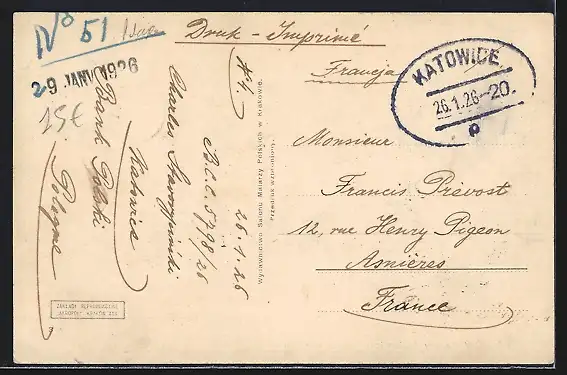 No 51
Druk - Imprimé
29 JANV 1926
15€
Francja
KATOWICE
26.1.26-20.
P
Monsieur
Francis Prévost
12, rue Henry Pigeon
Asnières
France
N4.
26.1.26
B.C.C. 57/8/26
Charles
Katowice
Bank Polski
Pologne
Wydawnictwo Salonu Malarzy Polskich w Krakowie.
Przedruk wzbroniony.
ZAKŁADY REPRODUKCYJNE
"AKROPOL" KRAKÓW
3